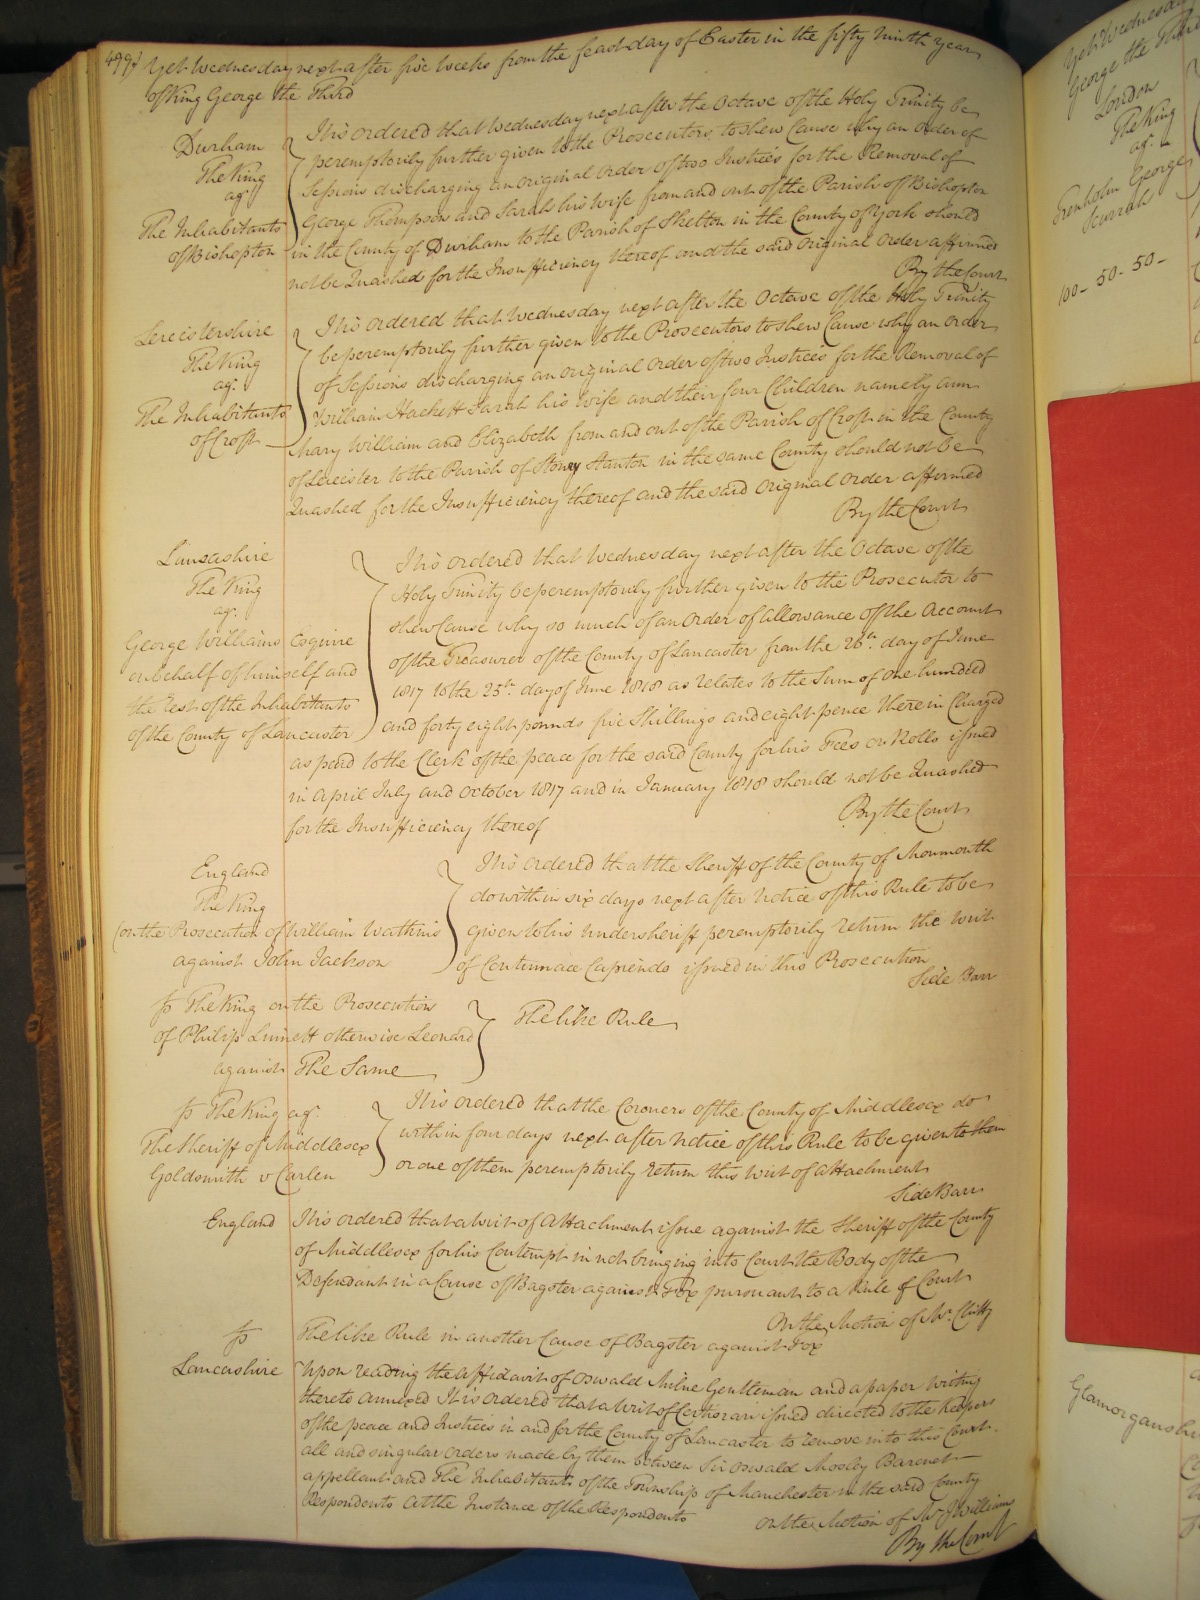 499
Yet Wednesday next after five weeks from the feast day of Easter in the fifty ninth year
of King George the Third
Durham
The King
agt
The Inhabitants
of Bishopton
It is ordered that Wednesday next after the Octave of the Holy Trinity be
peremptorily further given to the Prosecutors to shew Cause why an order of
Sessions discharging an original Order of two Justices for the Removal of
George Thompson and Sarah his Wife from and out of the Parish of Bishopton
in the County of Durham to the Parish of Skelton in the County of York should
not be Quashed for the Insufficiency thereof and the said Original Order affirmed
By the Court
Leicestershire
The King
agt.
The Inhabitants
of Croft
It is ordered that Wednesday next after the Octave of the Holy Trinity
be peremptorily further given to the Prosecutors to shew Cause why an Order
of Sessions discharging an original Order of two Justices for the Removal of
William Hackett Sarah his wife and their four Children namely Ann
Mary William and Elizabeth from and out of the Parish of Croft in the County
of Leicester to the Parish of Stoney Stanton in the same County should not be
Quashed for the Insufficiency thereof and the said Original Order affirmed
By the Court
Lancashire
The King
agt.
George Williams Esquire
on behalf of himself and
the rest of the Inhabitants
of the County of Lancaster
It is ordered that Wednesday next after the Octave of the
Holy Trinity be peremptorily further given to the Prosecutor to
shew Cause why so much of an Order of allowance of the Account
of the Treasurer of the County of Lancaster from the 26th. day of June
1817 to the 25th. day of June 1818 as relates to the Sum of one hundred
and forty eight pounds five Shillings and eight pence therein Charged
as paid to the Clerk of the peace for the said County for his Fees on Rolls issued
in April July and October 1817 and in January 1818 should not be Quashed
for the Insufficiency thereof
By the Court
England
The King
(on the Prosecution of William Watkins
against John Jackson
It is ordered that the Sheriff of the County of Monmouth
do within six days next after Notice of this Rule to be
given to his Undersheriff peremptorily return the Writ
of Contumace Capiendo issued in this Prosecution
Side Barr
fs The King on the Prosecution
of Philip Linnett otherwise Leonard
against The Same
The like Rule
fs The King agt.
The Sheriff of Middlesex
Goldsmith v Carlen
It is ordered that the Coroners of the County of Middlesex do
within four days next after Notice of this Rule to be given to them
or one of them peremptorily return this Writ of Attachment
Side Barr
England
It is ordered that a Writ of Attachment issue against the Sheriff of the County
of Middlesex for his Contempt in not bringing into Court the Body of the
Defendant in a Cause of Bagster against Fox pursuant to a Rule of Court
On the Motion of Mr. Chitty
fs
The like Rule in another Cause of Bagster against Fox
Lancashire
Upon reading the Affidavit of Oswald Milne Gentleman and a paper writing
thereto annexed It is ordered that a Writ of Certiorari issued directed to the Keepers
of the peace and Justices in and for the County of Lancaster to remove into this Court
all and singular Orders made by them between Sir Oswald Mosley Baronet
appellant and The Inhabitants of the Township of Manchester in the said County
Respondents At the Instance of the Respondents
On the Motion of Mr. J Williams
By the Court
Yet Wednesday
George the Third
London
The King
agt.
George
100 - 50 - 50 -
Glamorganshire